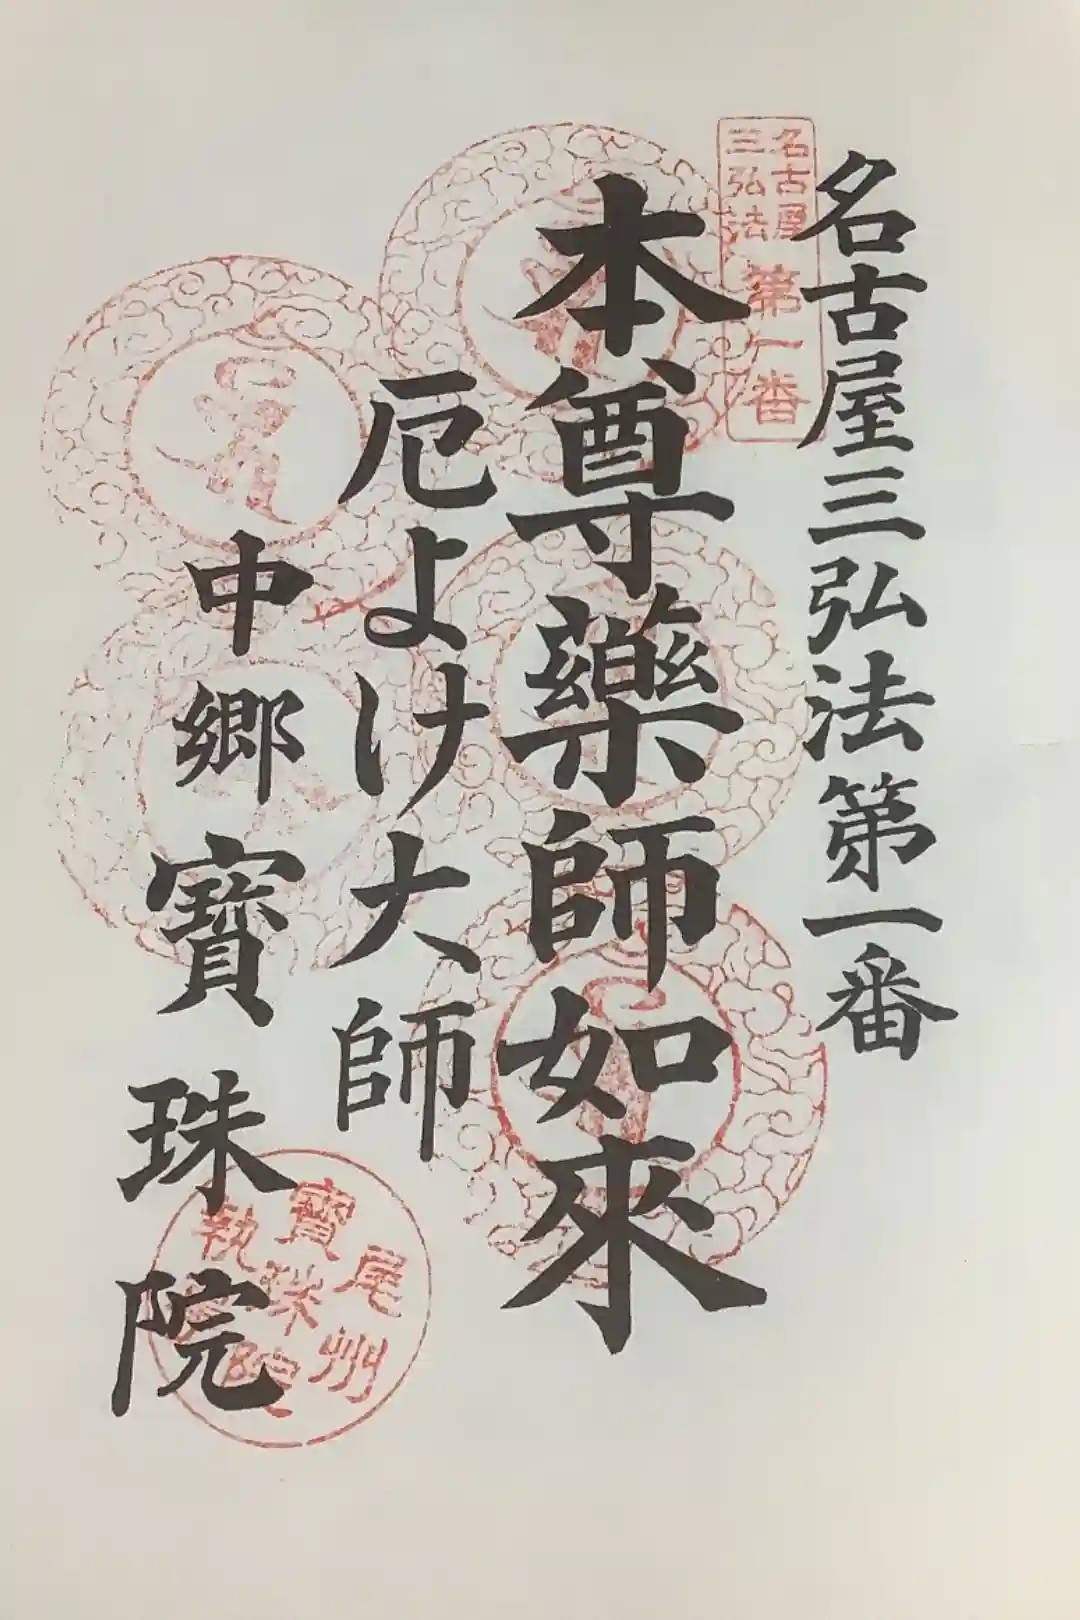 名古屋三弘法第一番
名古屋
三弘法
第一番
本尊藥師如來
厄よけ大師
中郷寶珠院
尾州
寶珠院